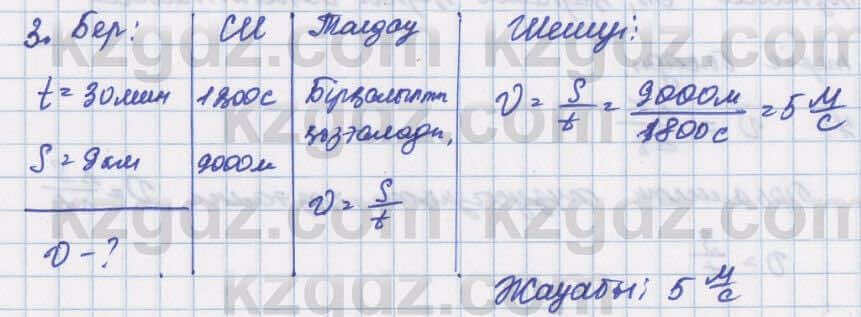 3. Бер:
t = 30мин
S = 9км
υ - ?
СИ
1800с
9000м
Талдау
Бірқалыпты
қозғалады,
υ = S/t
Шешуі:
υ = S/t = 9000м/1800с = 5 м/с
Жауабы: 5 м/с
kzgdz.com
kzgdz.com
kzgdz.com
kzgdz.com